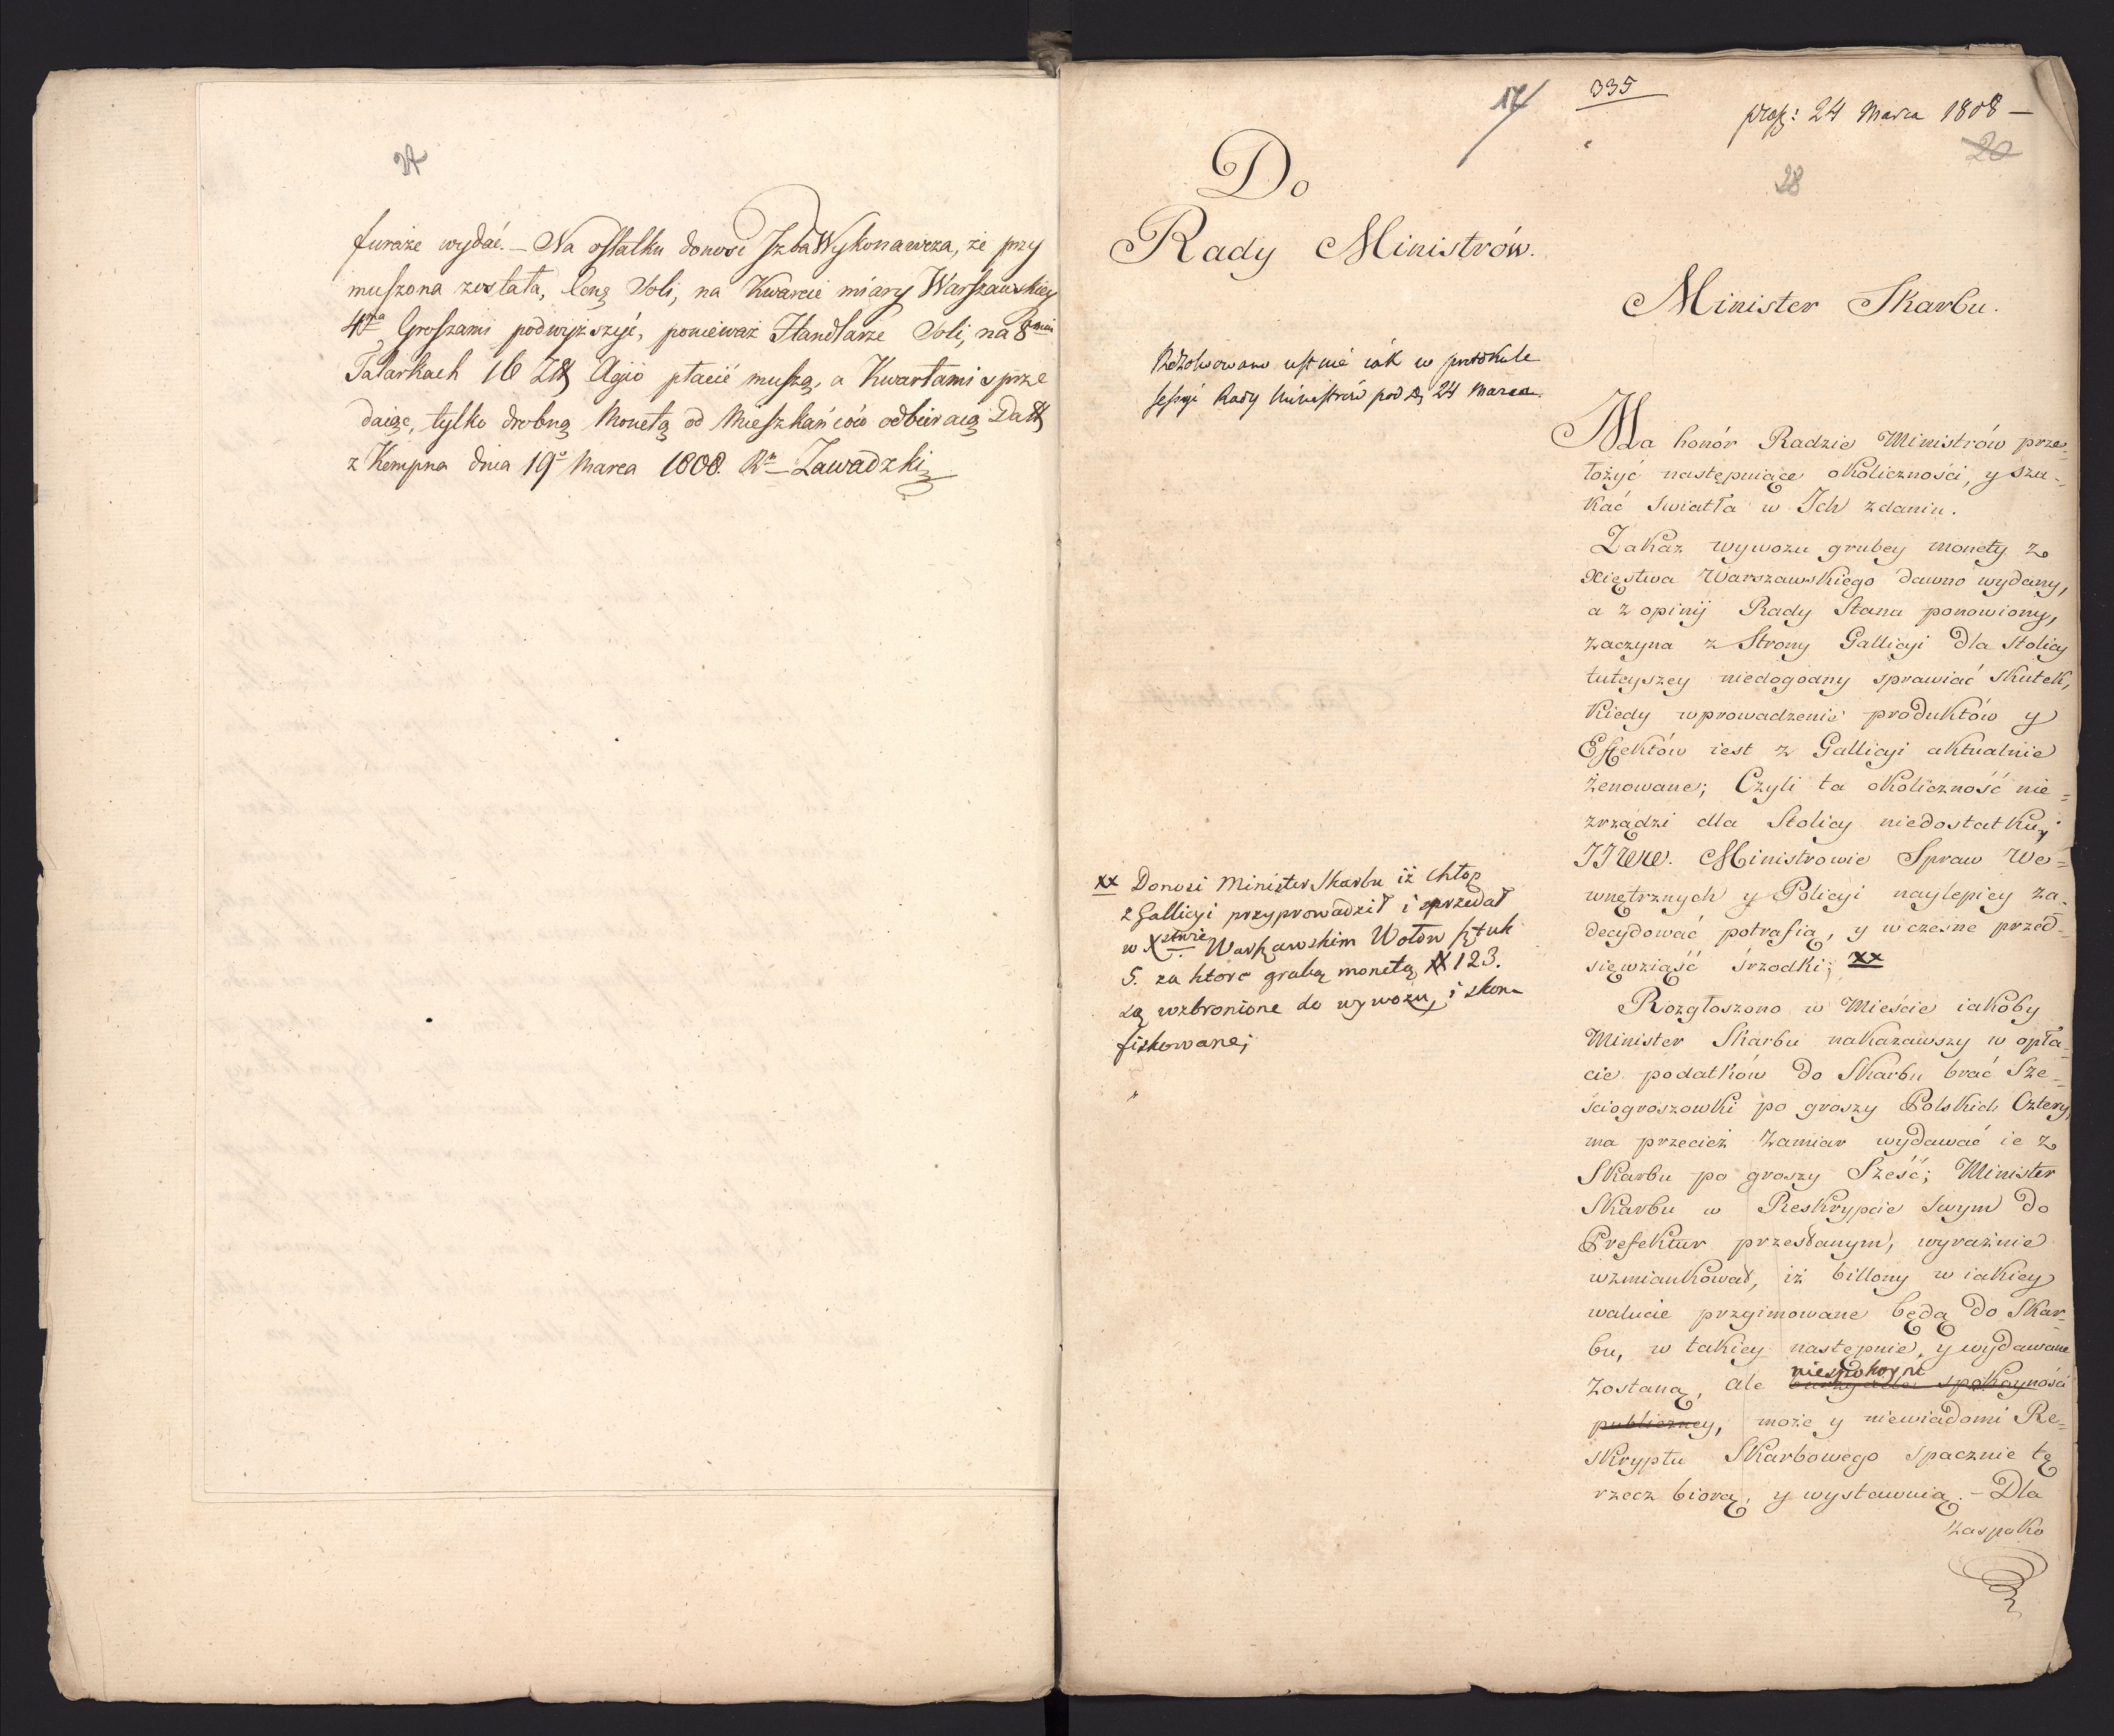 27
furaże wydać. – Na ostatku donosi Jzba Wykonawcza, że przy
muszona została, Cenę Soli, na Kwarcie miary Warszawskiey
4ma Groszami podwyższyć, ponieważ Handlarze Soli, na 8miu
Talarkach 16 Zł Agio płacić muszą, a Kwartami sprze
daiąc, tylko drobną Monetą od Mieszkańców odbieraią Datt
z Kempna dnia 19o Marca 1808. Zawadzki
14
335
24 Marca 1808 –
20
28
Do
Rady Ministrów.
Minister Skarbu.
Rezolwowano ustnie iak w protokule
sessyi Rady Ministrów pod d, 24 Marca.
Ma honór Radzie Ministrów prze=
łożyć następuiące okoliczności, y szu=
kać swiatła w Ich zdaniu.
Zakaz wywozu grubey monety z
Xięstwa Warszawskiego dawno wydany,
a z opinij Rady Stanu ponowiony,
zaczyna z Strony Gallicyi dla Stolicy
tuteyszey niedogodny sprawiać skutek,
kiedy wprowadzenie produktów y
Effektów iest z Gallicyi aktualnie
żenowane; Czyli ta okoliczność nie=
zrządzi dla Stolicy niedostatku,
JJWW. Ministrowie Spraw We=
wnętrznych y Policyi naylepiey za=
decydować potrafią, y wczesne przed=
sięwziąść śrzodki; xx
xx Donosi Minister Skarbu iż chłop
z Gallicyi przyprowadził i sprzedał
w Xstwie Warszawskim Wołów sztuk
5. za ktore grubą monetą # 123.
są wzbronione do wywozu, i skon=
fiskowane;
Rozgłoszono w Mieście iakoby
Minister Skarbu nakazawszy w opła=
cie podatków do Skarbu brać Sze=
ściogroszowki po groszy Polskich Cztery,
ma przecież zamiar wydawać ie z
Skarbu po groszy Sześć; Minister
Skarbu w Reskrypcie swym do
Prefektur przesłanym, wyraźnie
wzmiankował, iż billony w iakiey
walucie przyimowane będą do Skar=
bu, w takiey następnie, y wydawane
zostaną, ale niespokoyni spokoyności
publiczney, może y niewiadomi Re=
skryptu Skarbowego spacznie tę
rzecz biorą, y wystawuią. – Dla
zaspoko